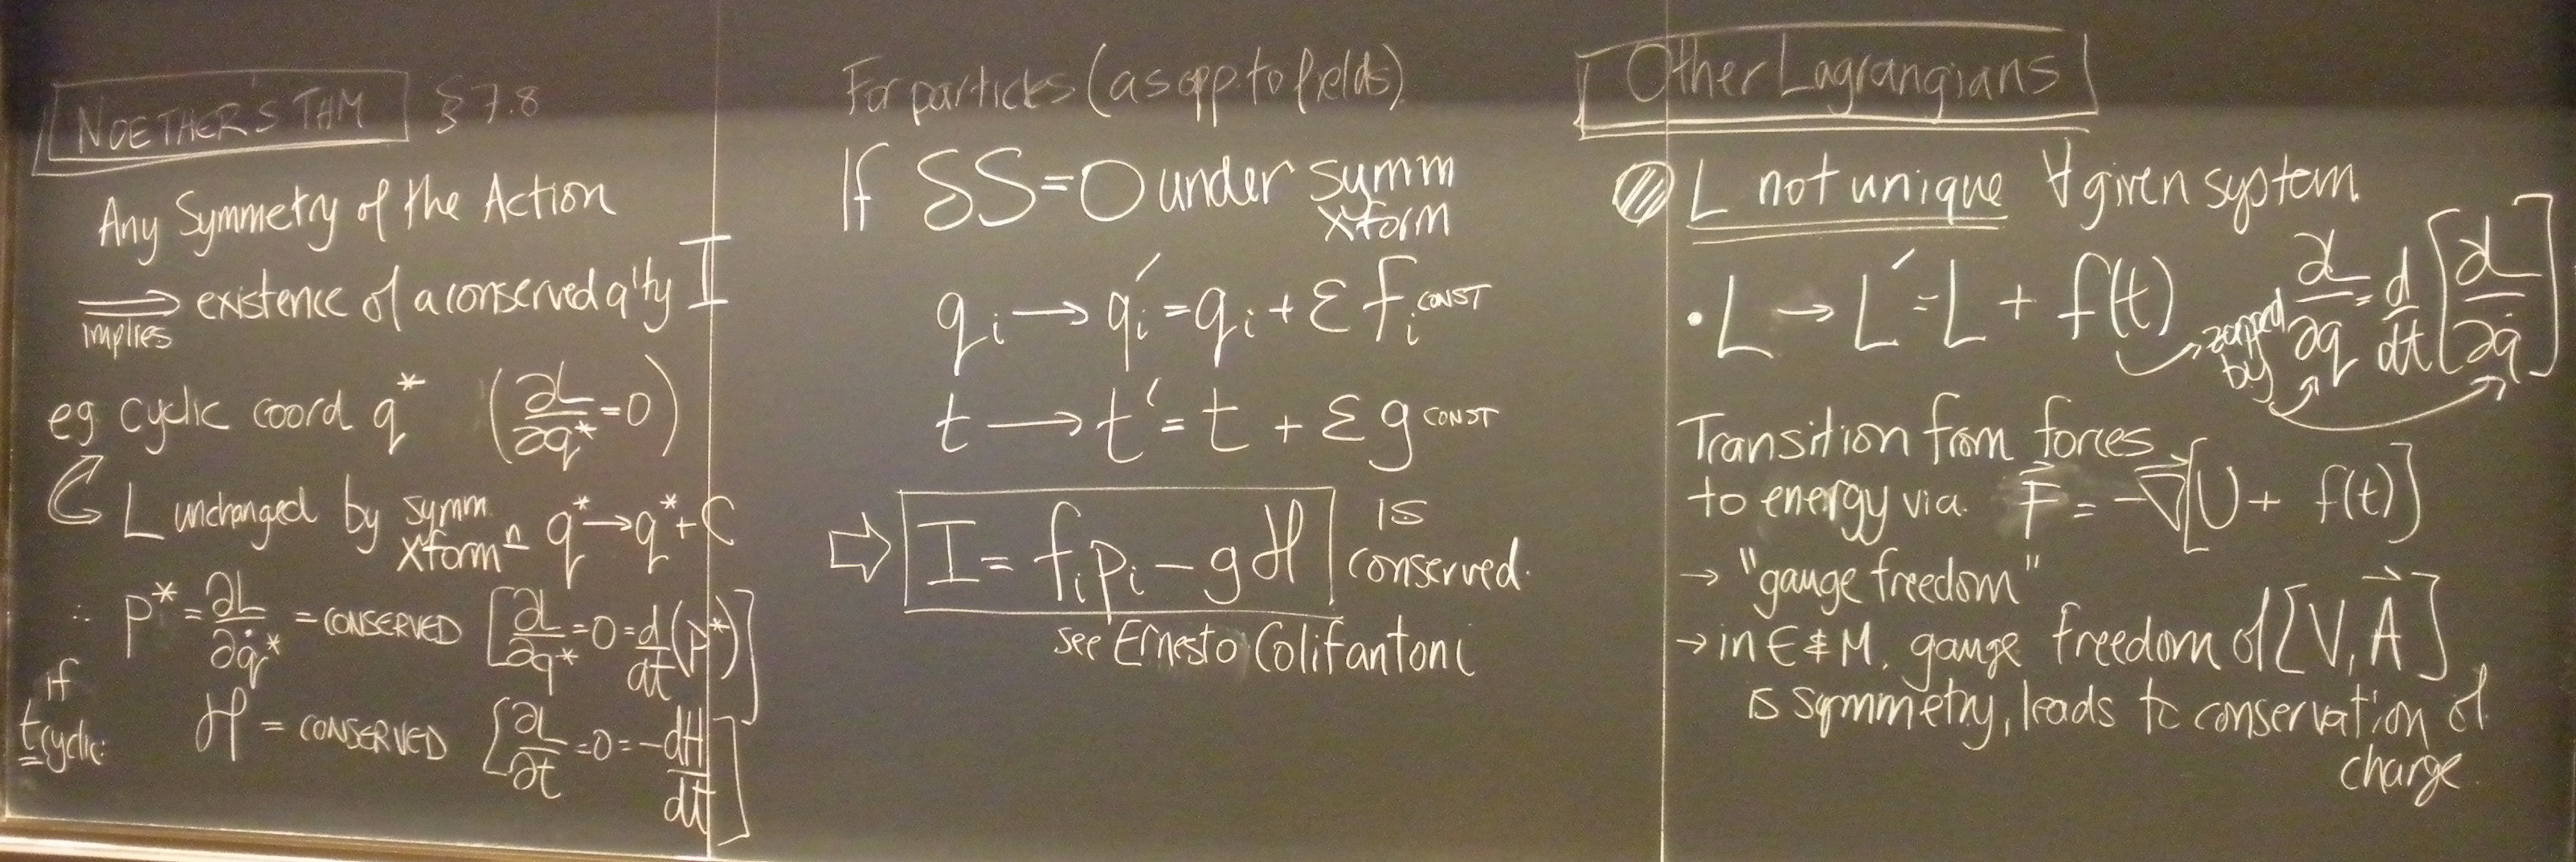 NOETHER'S THM § 7.8
Any Symmetry of the Action
⟹ existence of a conserved q'ty I
implies
eg cyclic coord q* (∂L/∂q* = 0)
L unchanged by symm xformⁿ q* → q* + C
∴ p* = ∂L/∂q̇* = CONSERVED [∂L/∂q* = 0 = d/dt (p*)]
if t cyclic: H = CONSERVED [∂L/∂t = 0 = -dH/dt]
For particles (as opp. to fields)
If δS = 0 under symm xform
qᵢ → qᵢ′ = qᵢ + ε fᵢ CONST
t → t′ = t + ε g CONST
⇒ I = fᵢpᵢ - gH is conserved.
see Ernesto Colifantoni
Other Lagrangians
L not unique ∀ given system
• L → L′ = L + f(t) → zapped by ∂/∂q = d/dt [∂/∂q̇]
Transition from forces
to energy via. F⃗ = -∇⃗[U + f(t)]
→ "gauge freedom"
→ in E & M, gauge freedom of [V, A⃗]
is symmetry, leads to conservation of
charge